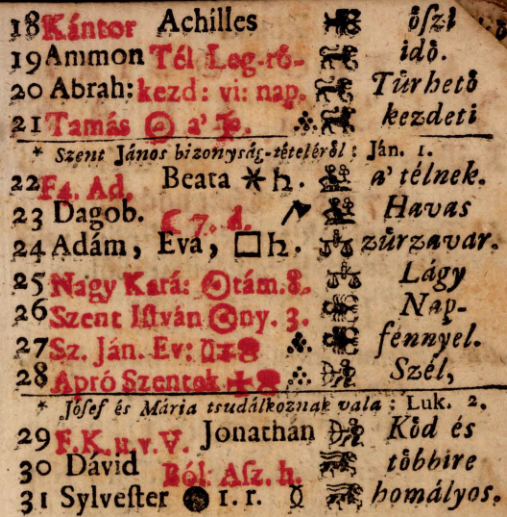 18 Kántor Achilles őszi
19 Ammon Tél Leg-rö- idő.
20 Abrah: kezd: vi: nap. Türhető
21 Tamás ☉ a' ♑. kezdeti
* Szent János bizonyság-tételéről: Ján. 1.
22 F4. Ad. Beata ✶ ♄. a' télnek.
23 Dagob. 7. d. Havas
24 Adám, Eva, □ ♄. zűrzavar.
25 Nagy Kará: ☉ tám. 8. Lágy
26 Szent Iſtván ☉ ny. 3. Nap-
27 Sz. Ján. Ev: fénnyel.
28 Apró Szentek Szél,
* Jósef és Mária tsudálkoznak vala: Luk. 2.
29 F. K. u. v. V. Jonathán Köd és
30 Dávid Ból: Aſz. h. többire
31 Sylveſter ● 1. r. ☿ homályos.